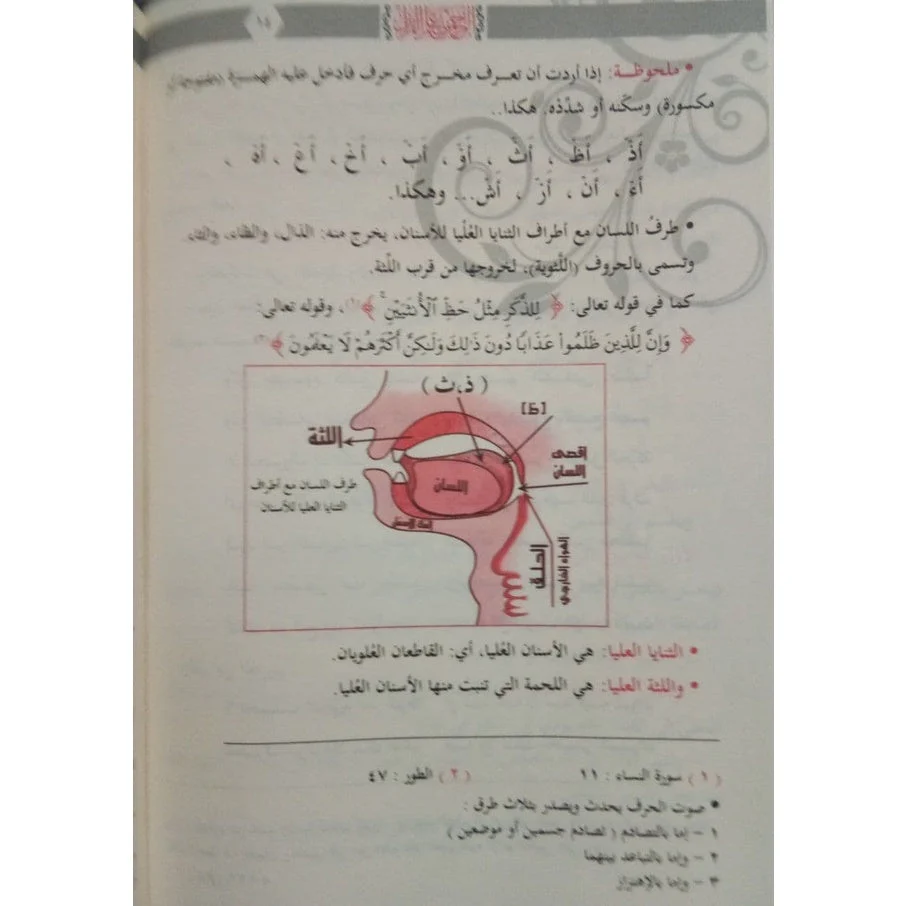 ١٥
• ملحوظة: إذا أردت أن تعرف مخرج أي حرف فأدخل عليه الهمزة (مفتوحة أو
مكسورة) وسكّنه أو شدّده. هكذا..
أَذْ ، أَظْ ، أَثْ ، أَوْ ، أَبْ ، أَخْ ، أَغْ ، أَهْ ،
أَءْ ، أَنْ ، أَزْ ، أَشْ... وهكذا.
• طرفُ اللسان مع أطراف الثنايا العُليا للأسنان، يخرج منه: الذال، والظاء، والثاء.
وتسمى بالحروف (اللَّثوية)، لخروجها من قرب اللِّثة.
كما في قوله تعالى: ﴿ لِلذَّكَرِ مِثْلُ حَظِّ ٱلْأُنثَيَيْنِ ﴾(١)، وقوله تعالى:
﴿ وَإِنَّ لِلَّذِينَ ظَلَمُواْ عَذَابًا دُونَ ذَٰلِكَ وَلَٰكِنَّ أَكْثَرَهُمْ لَا يَعْلَمُونَ ﴾(٢)
(ذ،ث)
[ظ]
اللثة
اقصى
اللسان
اللسان
طرف اللسان مع أطراف
الثنايا العليا للأسنان
الحلق
الهواء الخارجي
• الثنايا العليا: هي الأسنان العُليا، أي: القاطعان العُلويان.
• واللثة العليا: هي اللحمة التي تنبت منها الأسنان العُليا.
(١) سورة النساء : ١١
(٢) الطور : ٤٧
• صوت الحرف يحدث ويصدر بثلاث طرق :
١ - إما بالتصادم ( تصادم جسمين أو موضعين )
٢ - وإما بالتباعد بينهما
٣ - وإما بالإهتزاز